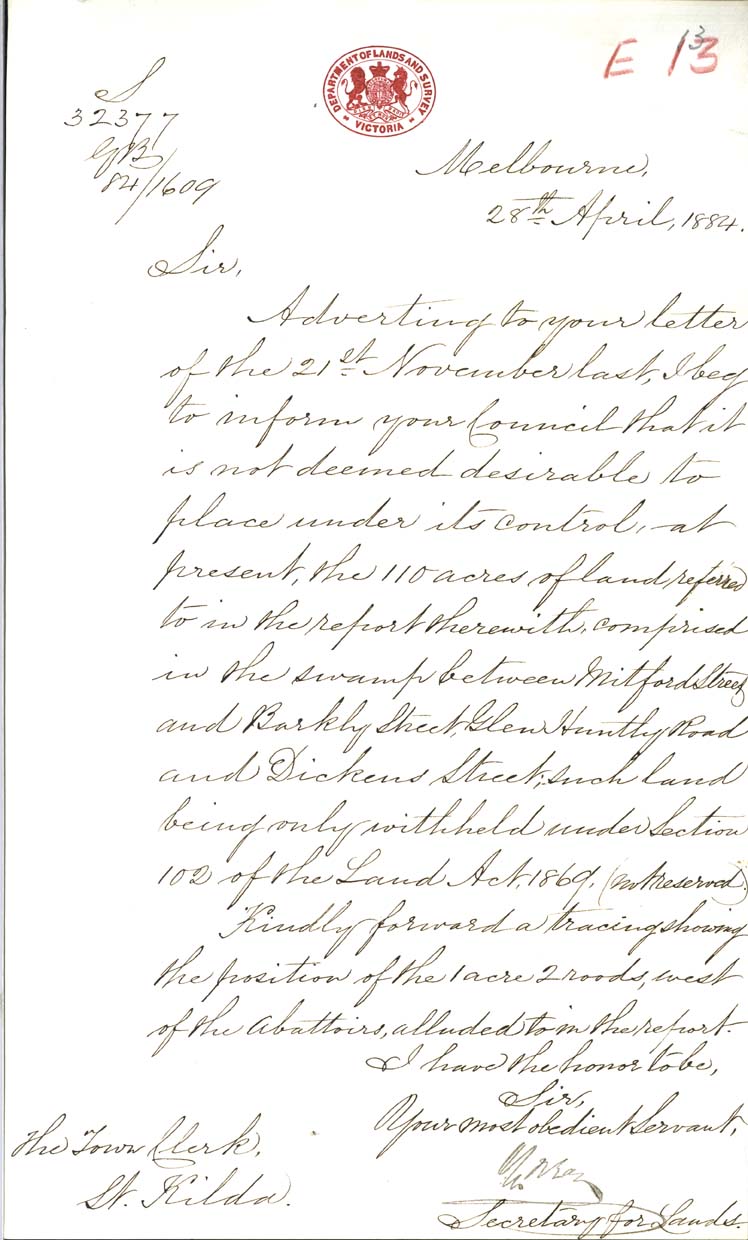 E 13
13
DEPARTMENT OF LANDS AND SURVEY
VICTORIA
S
32377
G B
84/1609
Melbourne,
28th April, 1884.
Sir,
Adverting to your letter
of the 21st November last, I beg
to inform your Council that it
is not deemed desirable to
place under its control, at
present, the 110 acres of land referred
to in the report therewith, comprised
in the swamp between Mitford Street
and Barkly Street, Glen Huntly Road
and Dickens Street; such land
being only withheld under Section
102 of the Land Act, 1869. (not reserved.)
Kindly forward a tracing showing
the position of the 1 acre 2 roods, west
of the Abattoirs, alluded to in the report.
I have the honor to be,
Sir,
Your most obedient Servant,
Secretary for Lands.
The Town Clerk,
St. Kilda.